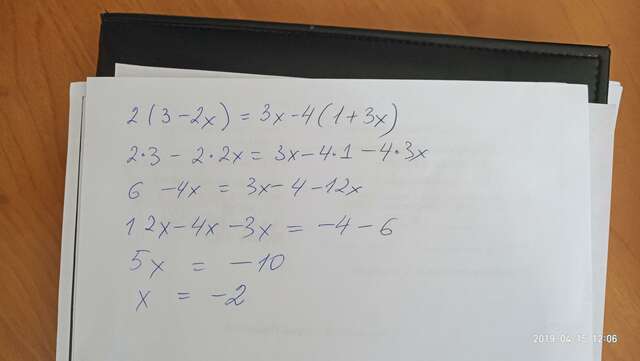 2(3-2x)=3x-4(1+3x)
2·3-2·2x=3x-4·1-4·3x
6-4x=3x-4-12x
12x-4x-3x=-4-6
5x=-10
x=-2
2019.04.15 12:06